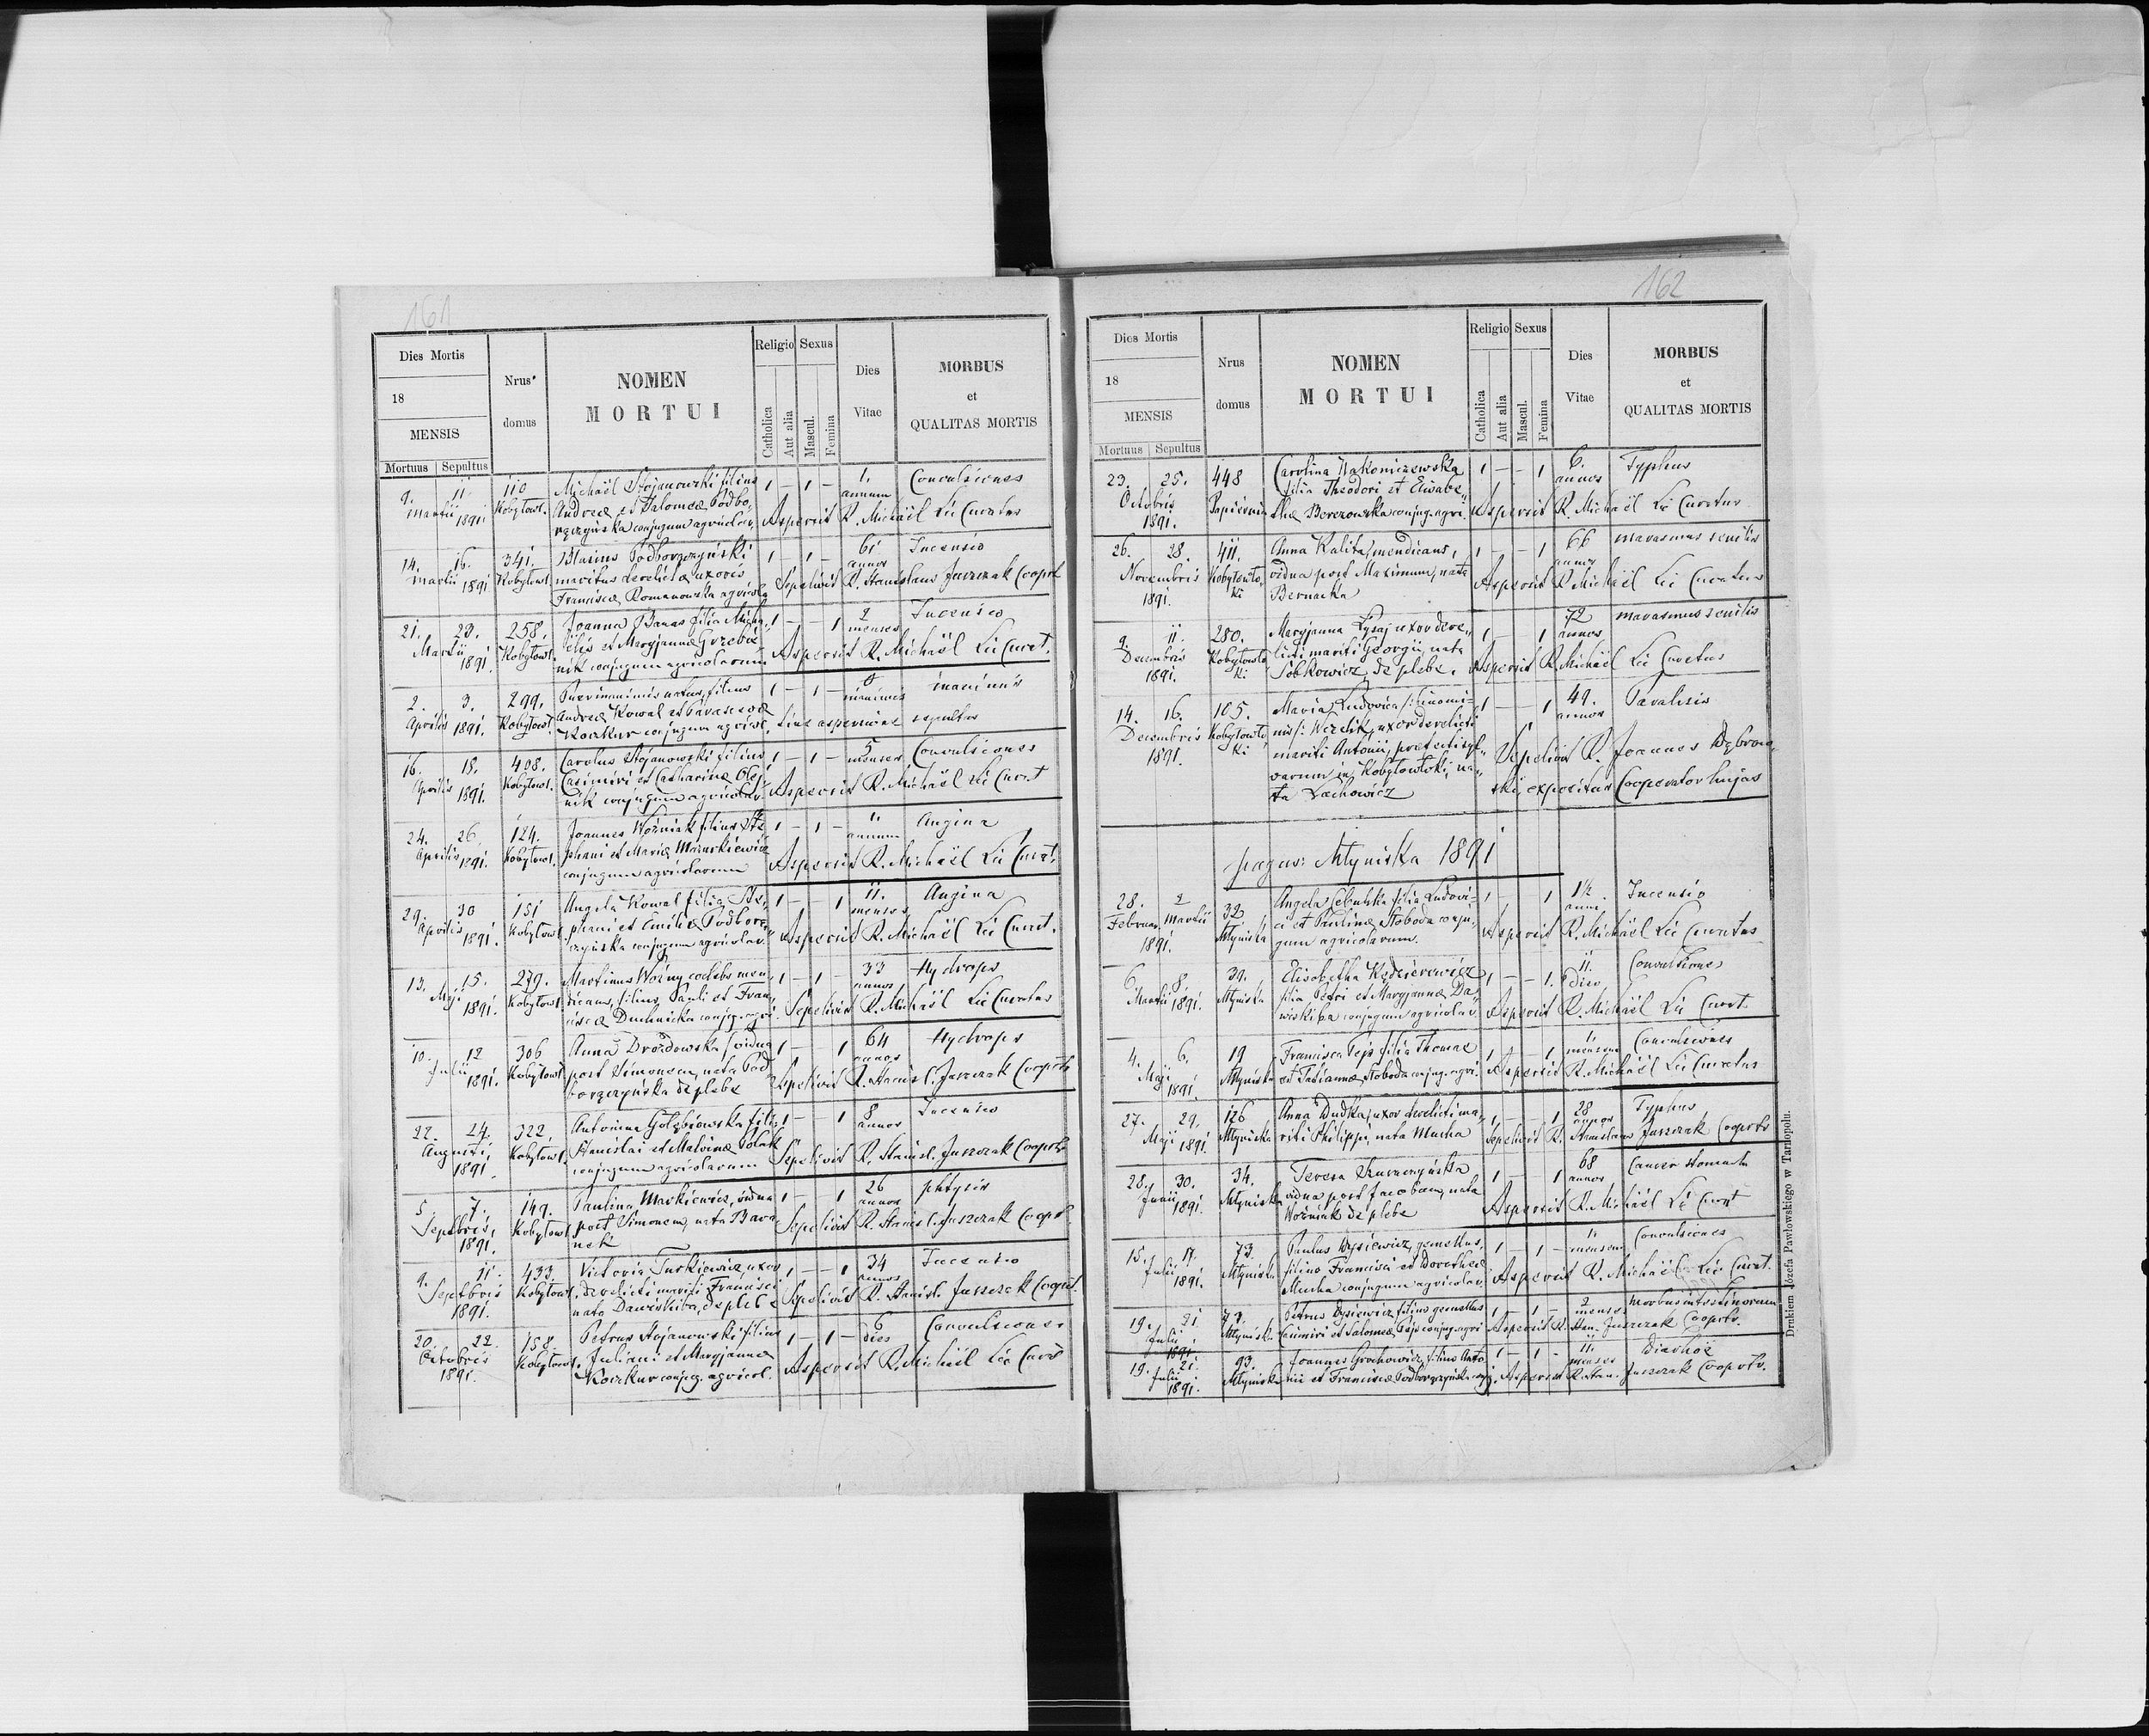 161
Dies Mortis
18
MENSIS
Mortuus Sepultus
Nrus
domus
NOMEN
MORTUI
Religio Sexus
Catholica
Aut alia
Mascul.
Femina
Dies
Vitae
MORBUS
et
QUALITAS MORTIS
9. 11. 110 Michaël Stojanowski filius 1 – 1 – 1. Convulsiones
Martii 1891 Kobyłowł. Andreæ et Salomeæ Podho- annum
ręczyńska conjugum agricolar. Aspersit R. Michaël Lic Curatus
14. 16. 341. Blasius Podhoręczyński 1 – 1 – 61 Incensio
Martii 1891 Kobyłowł. maritus derelictæ uxoris annos
Franciscæ Romanowska agricola Sepelivit R. Stanislaus Juszczak Cooprt
21. 23. 258. Joanna Banas filia Micha- 1 – – 1 2 Incensio
Martii 1891. Kobyłowł. ëlis et Maryjannæ Grzebie- menses
nik conjugum agricolarum Aspersit R. Michaël Lic Curat.
2. 3. 299. filius 1 – 1 –
Aprilis 1891. Kobyłowł. Andreæ Kowal et Parasceuæ
Koczkur conjugum agricol. sine aspersione sepultus
16. 18. 408. Carolus Stojanowski filius 1 – 1 – 5 Convulsiones
Aprilis 1891. Kobyłowł. Casimiri et Catharinæ Olej- menses
nik conjugum agricolar. Aspersit R. Michaël Lic Curat
24. 26. 124. Joannes Woźniak filius Ste- 1 – 1 – 1. Angina
Aprilis 1891. Kobyłowł. phani et Mariæ Mazurkiewicz annum
conjugum agricolarum Aspersit R. Michaël Lic Curat.
29. 30 151 Angela Kowal filia Ste- 1 – – 1 11. Angina
Aprilis 1891. Kobyłowł. phani et Emiliæ Podhorę- menses
czyńska conjugum agricolar. Aspersit R. Michaël Lic Curat.
13. 15. 279. Martinus Woźny coelebs men- 1 – 1 – 33 Hydrops
Maji 1891. Kobyłowł. dicans, filius Pauli et Fran- annos
ciscæ Duchnicka conjug. agri. Sepelivit R. Michaël Lic Curatus
10. 12 306 Anna Drozdowska vidua 1 – – 1 64 Hydrops
Julii 1891. Kobyłowł. post Simonem, nata Pod- annos
horęczyńska de plebe Sepelivit R. Stanisl. Juszczak Cooprts
22. 24. 322. Antonina Gołębiowska filia 1 – – 1 8 Incensio
Augusti, 1891. Kobyłowł. Stanislai et Malvinæ Polak annos
conjugum agricolarum Sepelivit R. Stanisl. Juszczak Cooprts
5. 7. 149. Paulina Markiewicz, vidua 1 – – 1 26 phtysis
Septbris, 1891. Kobyłowł. post Simonem, nata Bara- annos
nek Sepelivit R. Stanisl. Juszczak Cooprt.
9. 11. 433. Victoria Turkiewicz, uxor 1 – – 1 34 Incensio
Septbris 1891. Kobyłowł. derelicti mariti Francisci annos
nata Dawiskiba, de plebe Sepelivit R. Stanisl. Juszczak Cooprt.
20. 22. 158. Petrus Stojanowski filius 1 – 1 – 6 Convulsiones
Octobris 1891. Kobyłowł. Juliani et Maryjannæ dies
Koczkur conjug. agricol. Aspersit R. Michaël Lic Curat
162
Dies Mortis
18
MENSIS
Mortuus Sepultus
Nrus
domus
NOMEN
MORTUI
Religio Sexus
Catholica
Aut alia
Mascul.
Femina
Dies
Vitae
MORBUS
et
QUALITAS MORTIS
23. 25. 448 Carolina Nakoniczewska 1 – – 1 6. Typhus
Octobris Papiernia filia Theodori et Elisabe- annos
1891. thæ Berezowska conjug. agri. Aspersit R. Michaël Lic Curatus
26. 28. 411. Anna Kalita, mendicans, 1 – – 1 66 marasmus senilis
Novembris Kobyłowło- vidua post Maximum, nata annos
1891. ki Bernacka Aspersit R. Michaël Lic Curatus
9. 11. 280. Maryjanna Łysaj uxor dere- 1 – – 1 72 marasmus senilis
Decembris Kobyłowło- licti mariti Georgii, nata annos
1891. ki Sobkowicz, de plebe. Aspersit R. Michaël Lic Curatus
14. 16. 105. Maria Ludovica 1 – – 1 49. Paralisis
Decembris Kobyłowło- uxor derelicti annos
1891. ki mariti Antonii, Sepelivit R. Joannes Dąbrow-
in Kobyłowłoki, na- ski, expositus Cooperator hujas
ta Lachowicz
pagus: Młyniska 1891
28. 2 32 Angela Cebulska filia Ludovi- 1 – – 1 1½ Incensio
Februar. Martii Młyniska ci et Paulinæ Słoboda conju-
1891. gum agricolarum. Aspersit R. Michaël Lic Curatus
6. 8. 30. Elisabetha Kędzierewicz 1 – – 1. 11. Convulsiones
Martii 1891. Młyniska filia Petri et Maryjannæ Da- dies
wiskiba conjugum agricolar. Aspersit R. Michaël Lic Curat.
4. 6. 19 Francisca Pejs filia Thomæ 1 – – 1. 1. Convulsiones
Maji 1891. Młyniska et Tatiannæ Słoboda conjug. agri. mensem Aspersit R. Michaël Lic Curatus
27. 29. 126 Anna Dudka, uxor derelicti ma- 1 – – 1 28 Typhus
Maji 1891. Młyniska riti Philippi, nata Mucha annos Sepelivit R. Stanislaus Juszczak Cooprts
28. 30. 34. Teresa 1 – – 1 68 Cancer stomachi
Junii 1891. Młyniska vidua post Jacobum, nata annos
Woźniak de plebe Aspersit R. Michaël Lic Curat
15. 17. 73. Paulus Dysiewicz, gemellus, 1 – 1 – 1. Convulsiones
Julii 1891. Młyniska filius Francisci et Dorotheæ mensem
Mucha conjugum agricolar. Aspersit R. Michaël Lic Curat.
19. 21. 73. Petrus Dysiewicz filius gemellus 1 – 1 – 2 morbus intestinorum
Julii 1891 Młyniska Casimiri et Salomeæ Pejs conjug. agri. menses Aspersit R. Stan. Juszczak Cooprts.
19. 21. 93. Joannes Grochowicz filius Anto- 1 – 1 – 11. Diarhöe
Julii 1891. Młyniska nii et Franciscæ Podhoręczyńska menses Aspersit R. Stan. Juszczak Cooprts.
Drukiem Józefa Pawłowskiego w Tarnopolu.